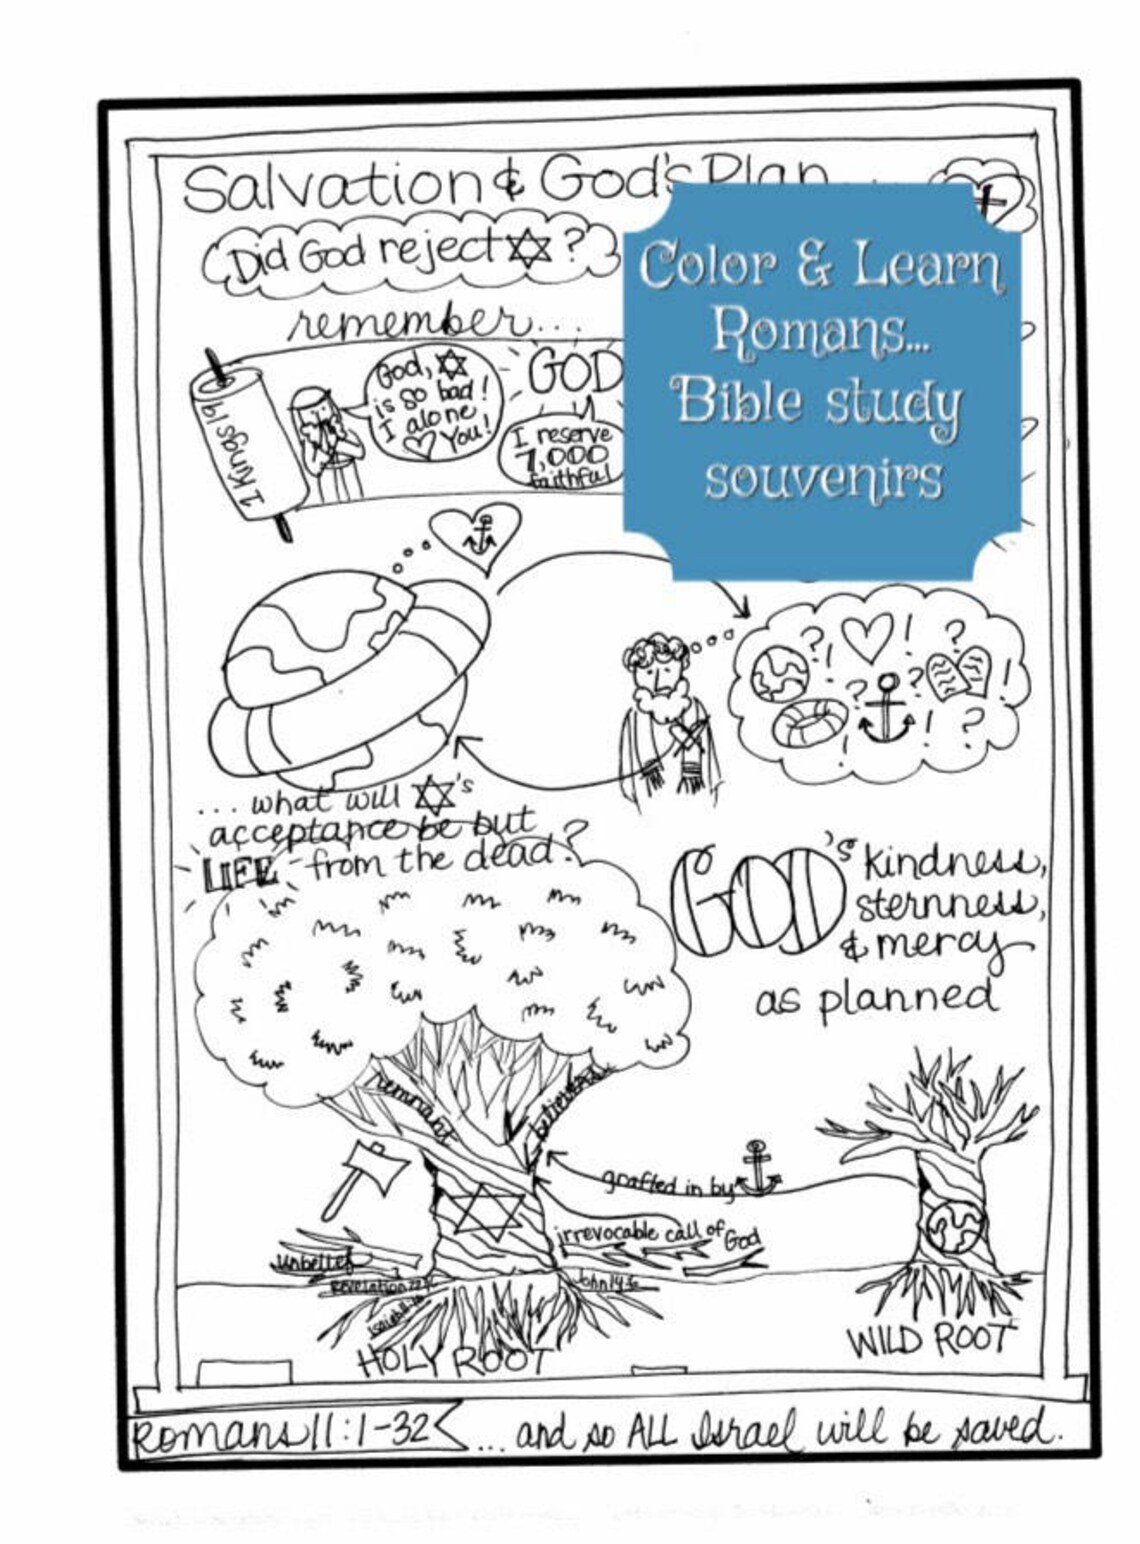 Salvation & God's Plan
Did God reject ✡?
remember...
1 Kings 19
God, ✡
is so bad!
I alone
♡ You!
GOD
I reserve
7,000
faithful
Color & Learn
Romans...
Bible study
souvenirs
...what will ✡'s
acceptance be but
LIFE from the dead?
GOD's kindness,
sternness,
& mercy
as planned
remnant
believers
grafted in by
irrevocable call of God
unbelief
Revelation 22:16
John 14:6
Isaiah 11:10
HOLY ROOT
WILD ROOT
Romans 11:1-32
...and so ALL Israel will be saved.